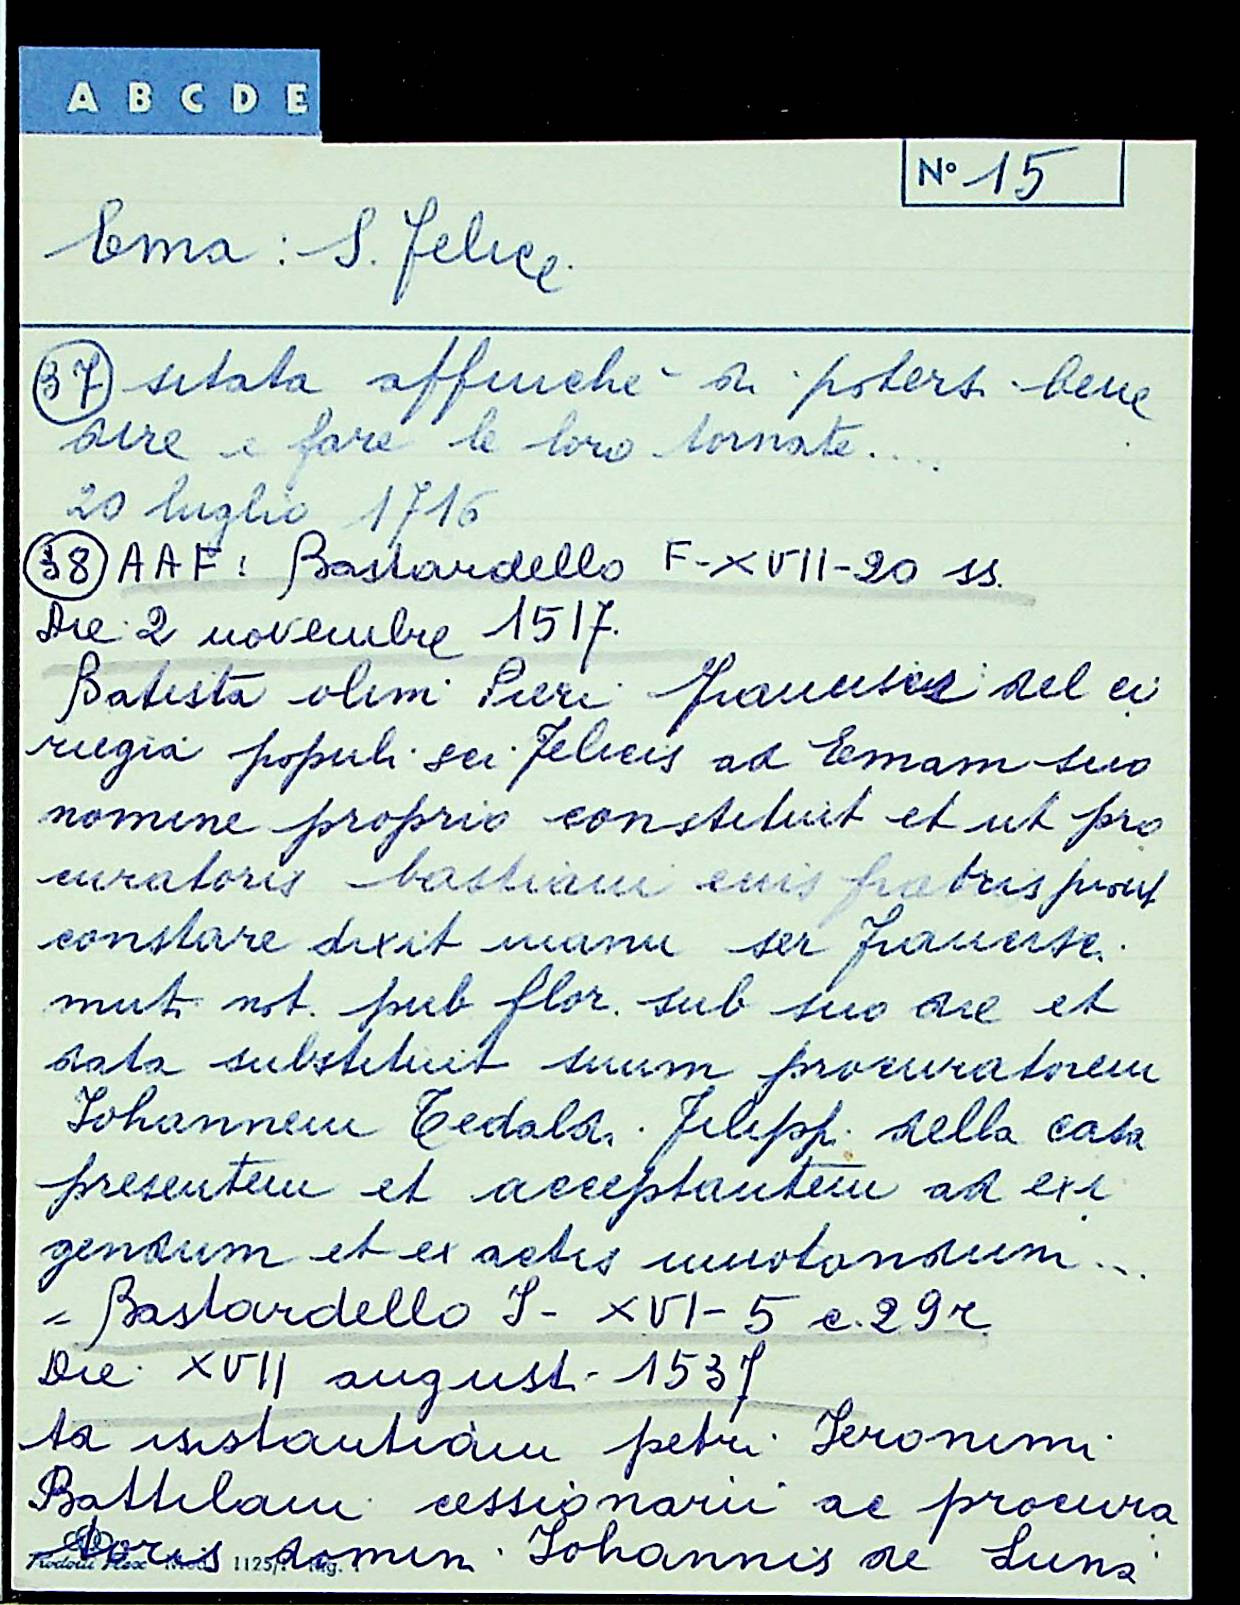 A B C D E
N° 15
Ema: S. Felice.
37 sitata affinché di potersi bene
dire e fare le loro tornate....
20 luglio 1716
38 AAF: Bastardello F-XVII-20 ss.
Die 2 novembre 1517.
Batista olim Pieri Francisci del ci
rugia populi sci Felicis ad Emam suo
nomine proprio constituit et ut pro
curatoris bastiani eius fratris prout
constare dixit manu ser Francisc.
muti not. pub flor. sub suo die et
data substituit suum procuratorem
Johannem Tedaldi Filippi della casa
presentem et acceptantem ad exi
gendum et exactis
= Bastardello I- XVI-5 c.29r
Die XVII augusti 1537
Ad instantiam petri Ieronimi
Battilani cessionarii ac procura
toris domini Johannis de Luna
1125/